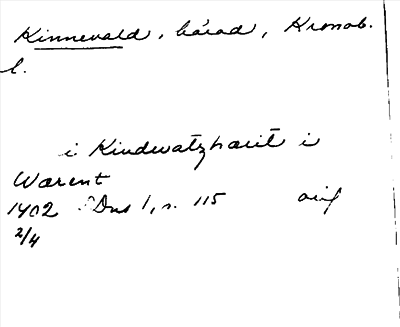 Kinnevald, härad, Kronob.
l.
i Kindwatzhärit i
Wärent
1402 Dns 1, s. 115 orig
2/4